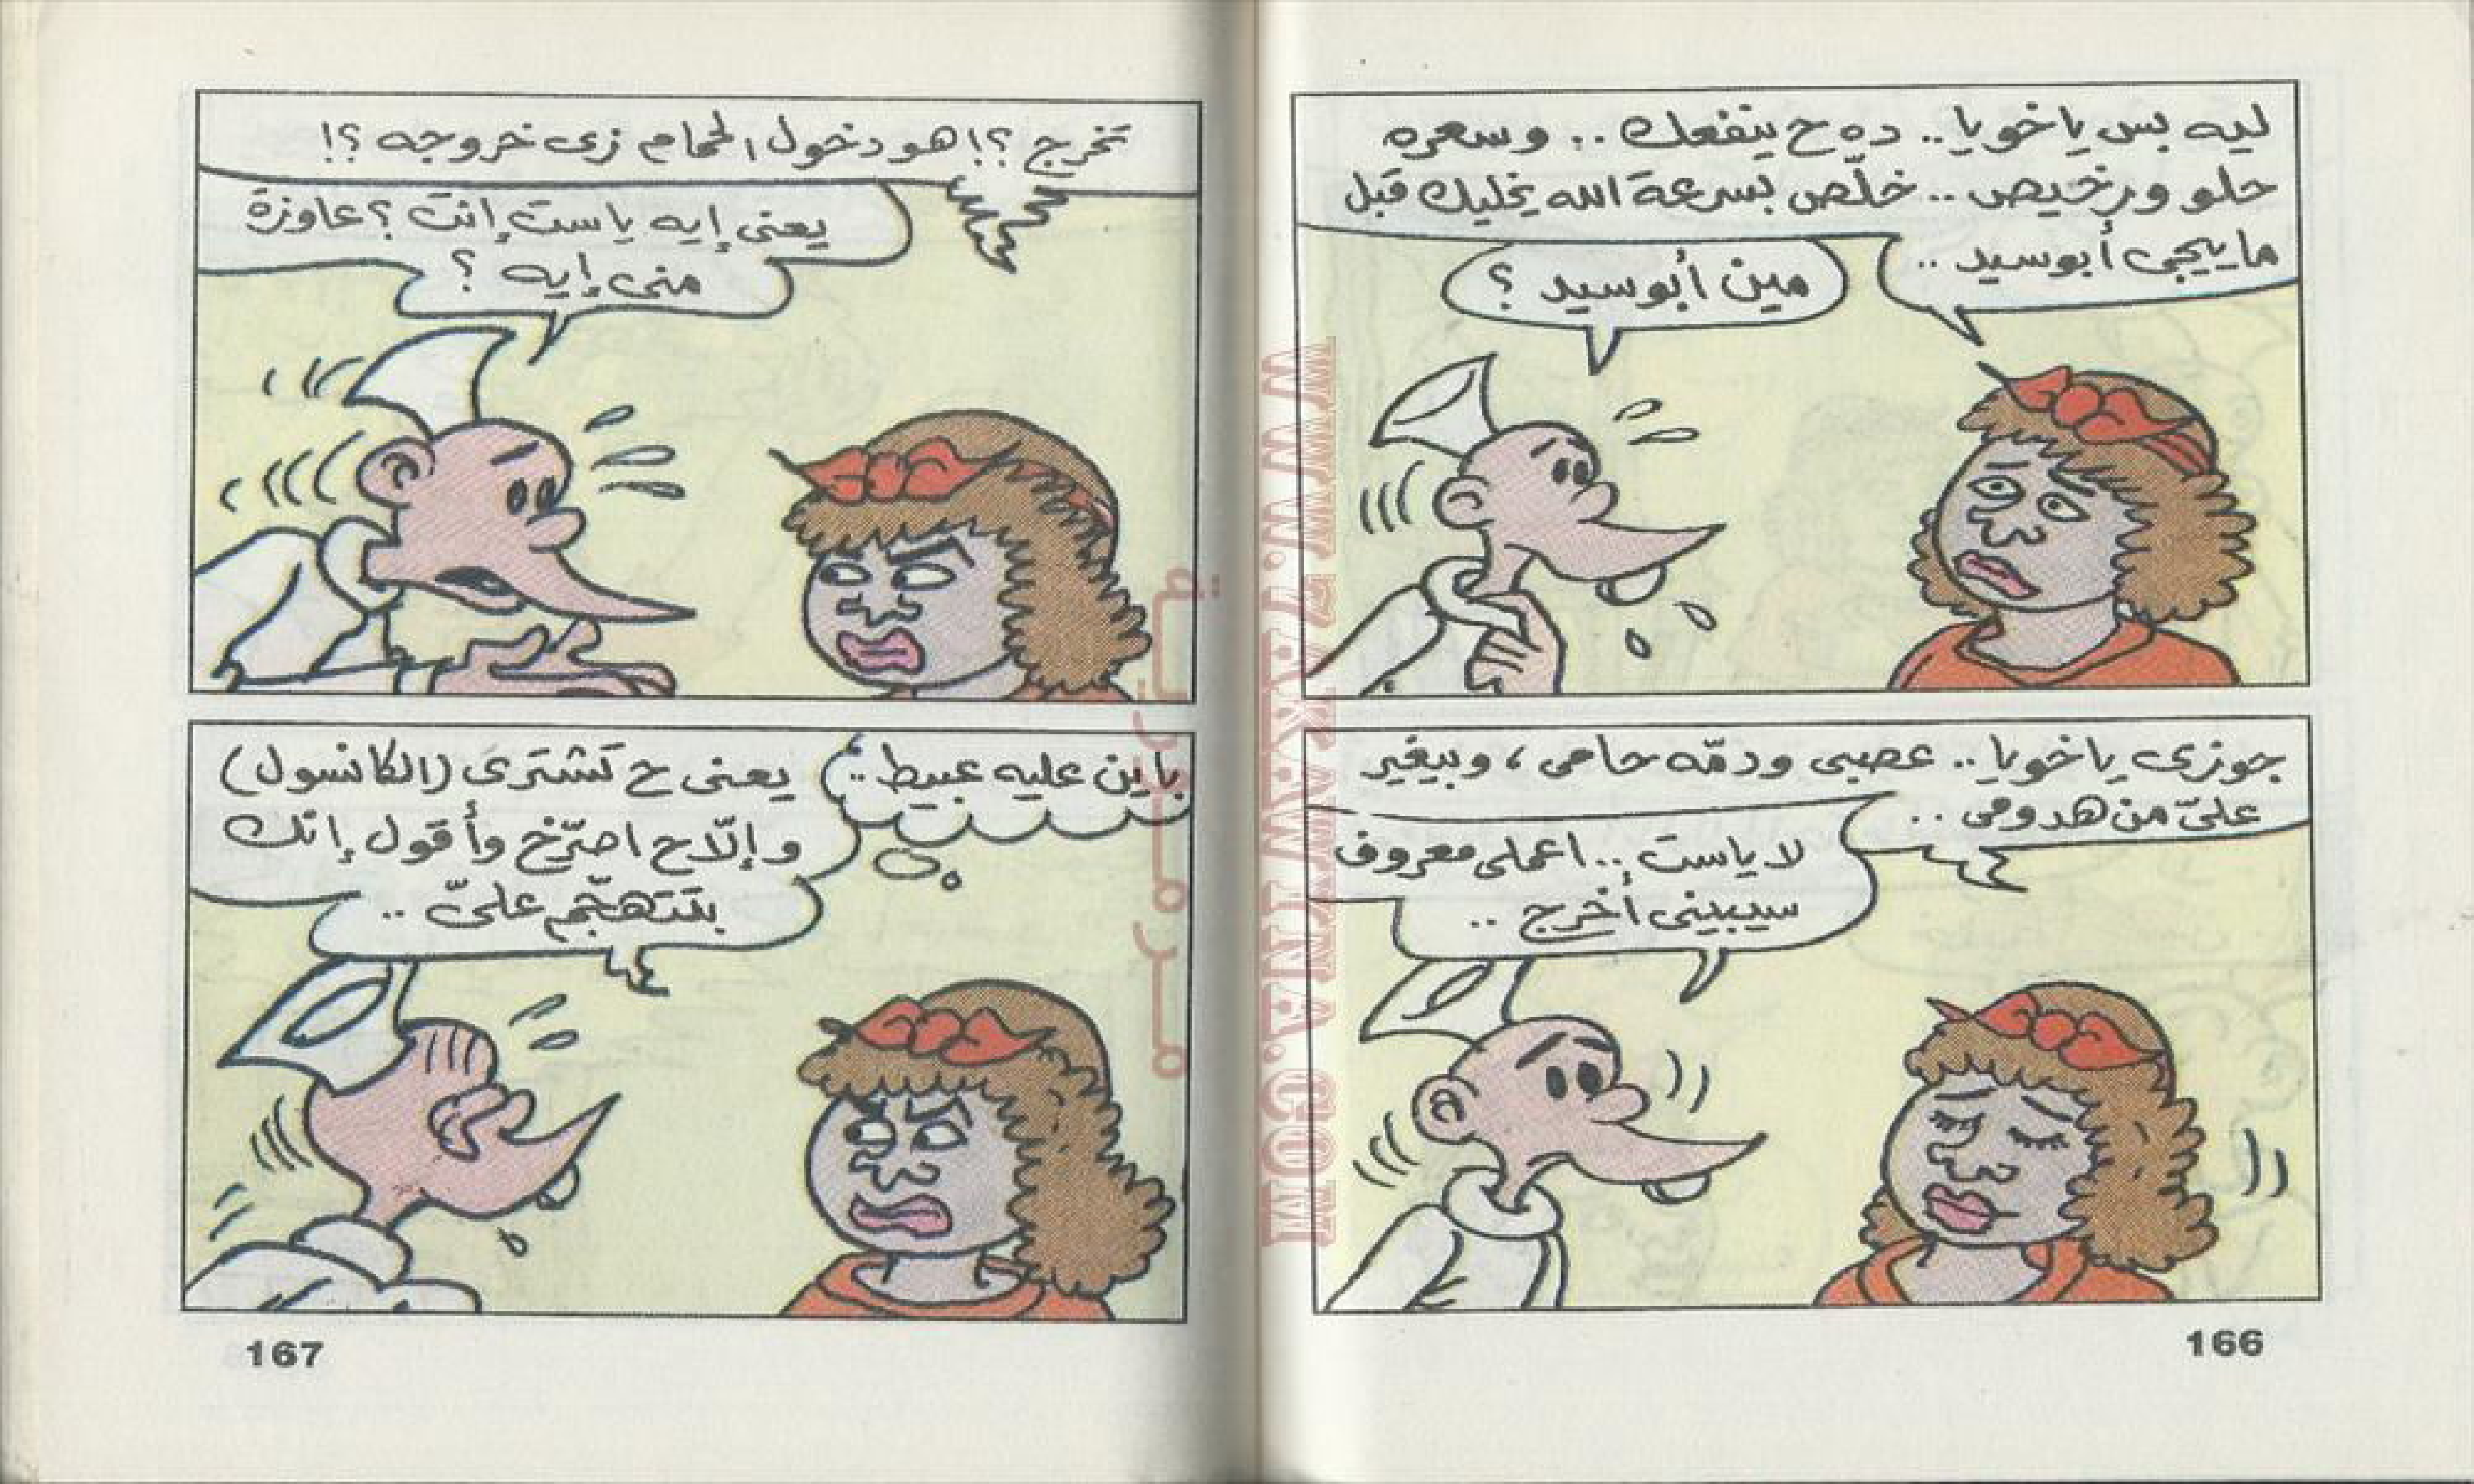 ليه بس ياخويا.. ده ح ينفعك.. وسعره
حلو ورخيص.. خلّص بسرعة الله يخليك قبل
ما ييجى أبو سيد..
مين أبو سيد ؟
جوزى ياخويا.. عصبى ودمّه حامى ، وبيغير
علىّ من هدومى..
لا ياست.. اعملى معروف
سيبينى أخرج..
166
تخرج ؟! هو دخول الحمام زى خروجه ؟!
يعنى إيه ياست إنتَ ؟ عاوزة
منى إيه ؟
باين عليه عبيط..
يعنى ح تشترى (الكانسول)
وإلّا ح اصرّخ وأقول إنك
بتتهجّم علىّ..
167
WWW.ZAKAWYNNA.COM